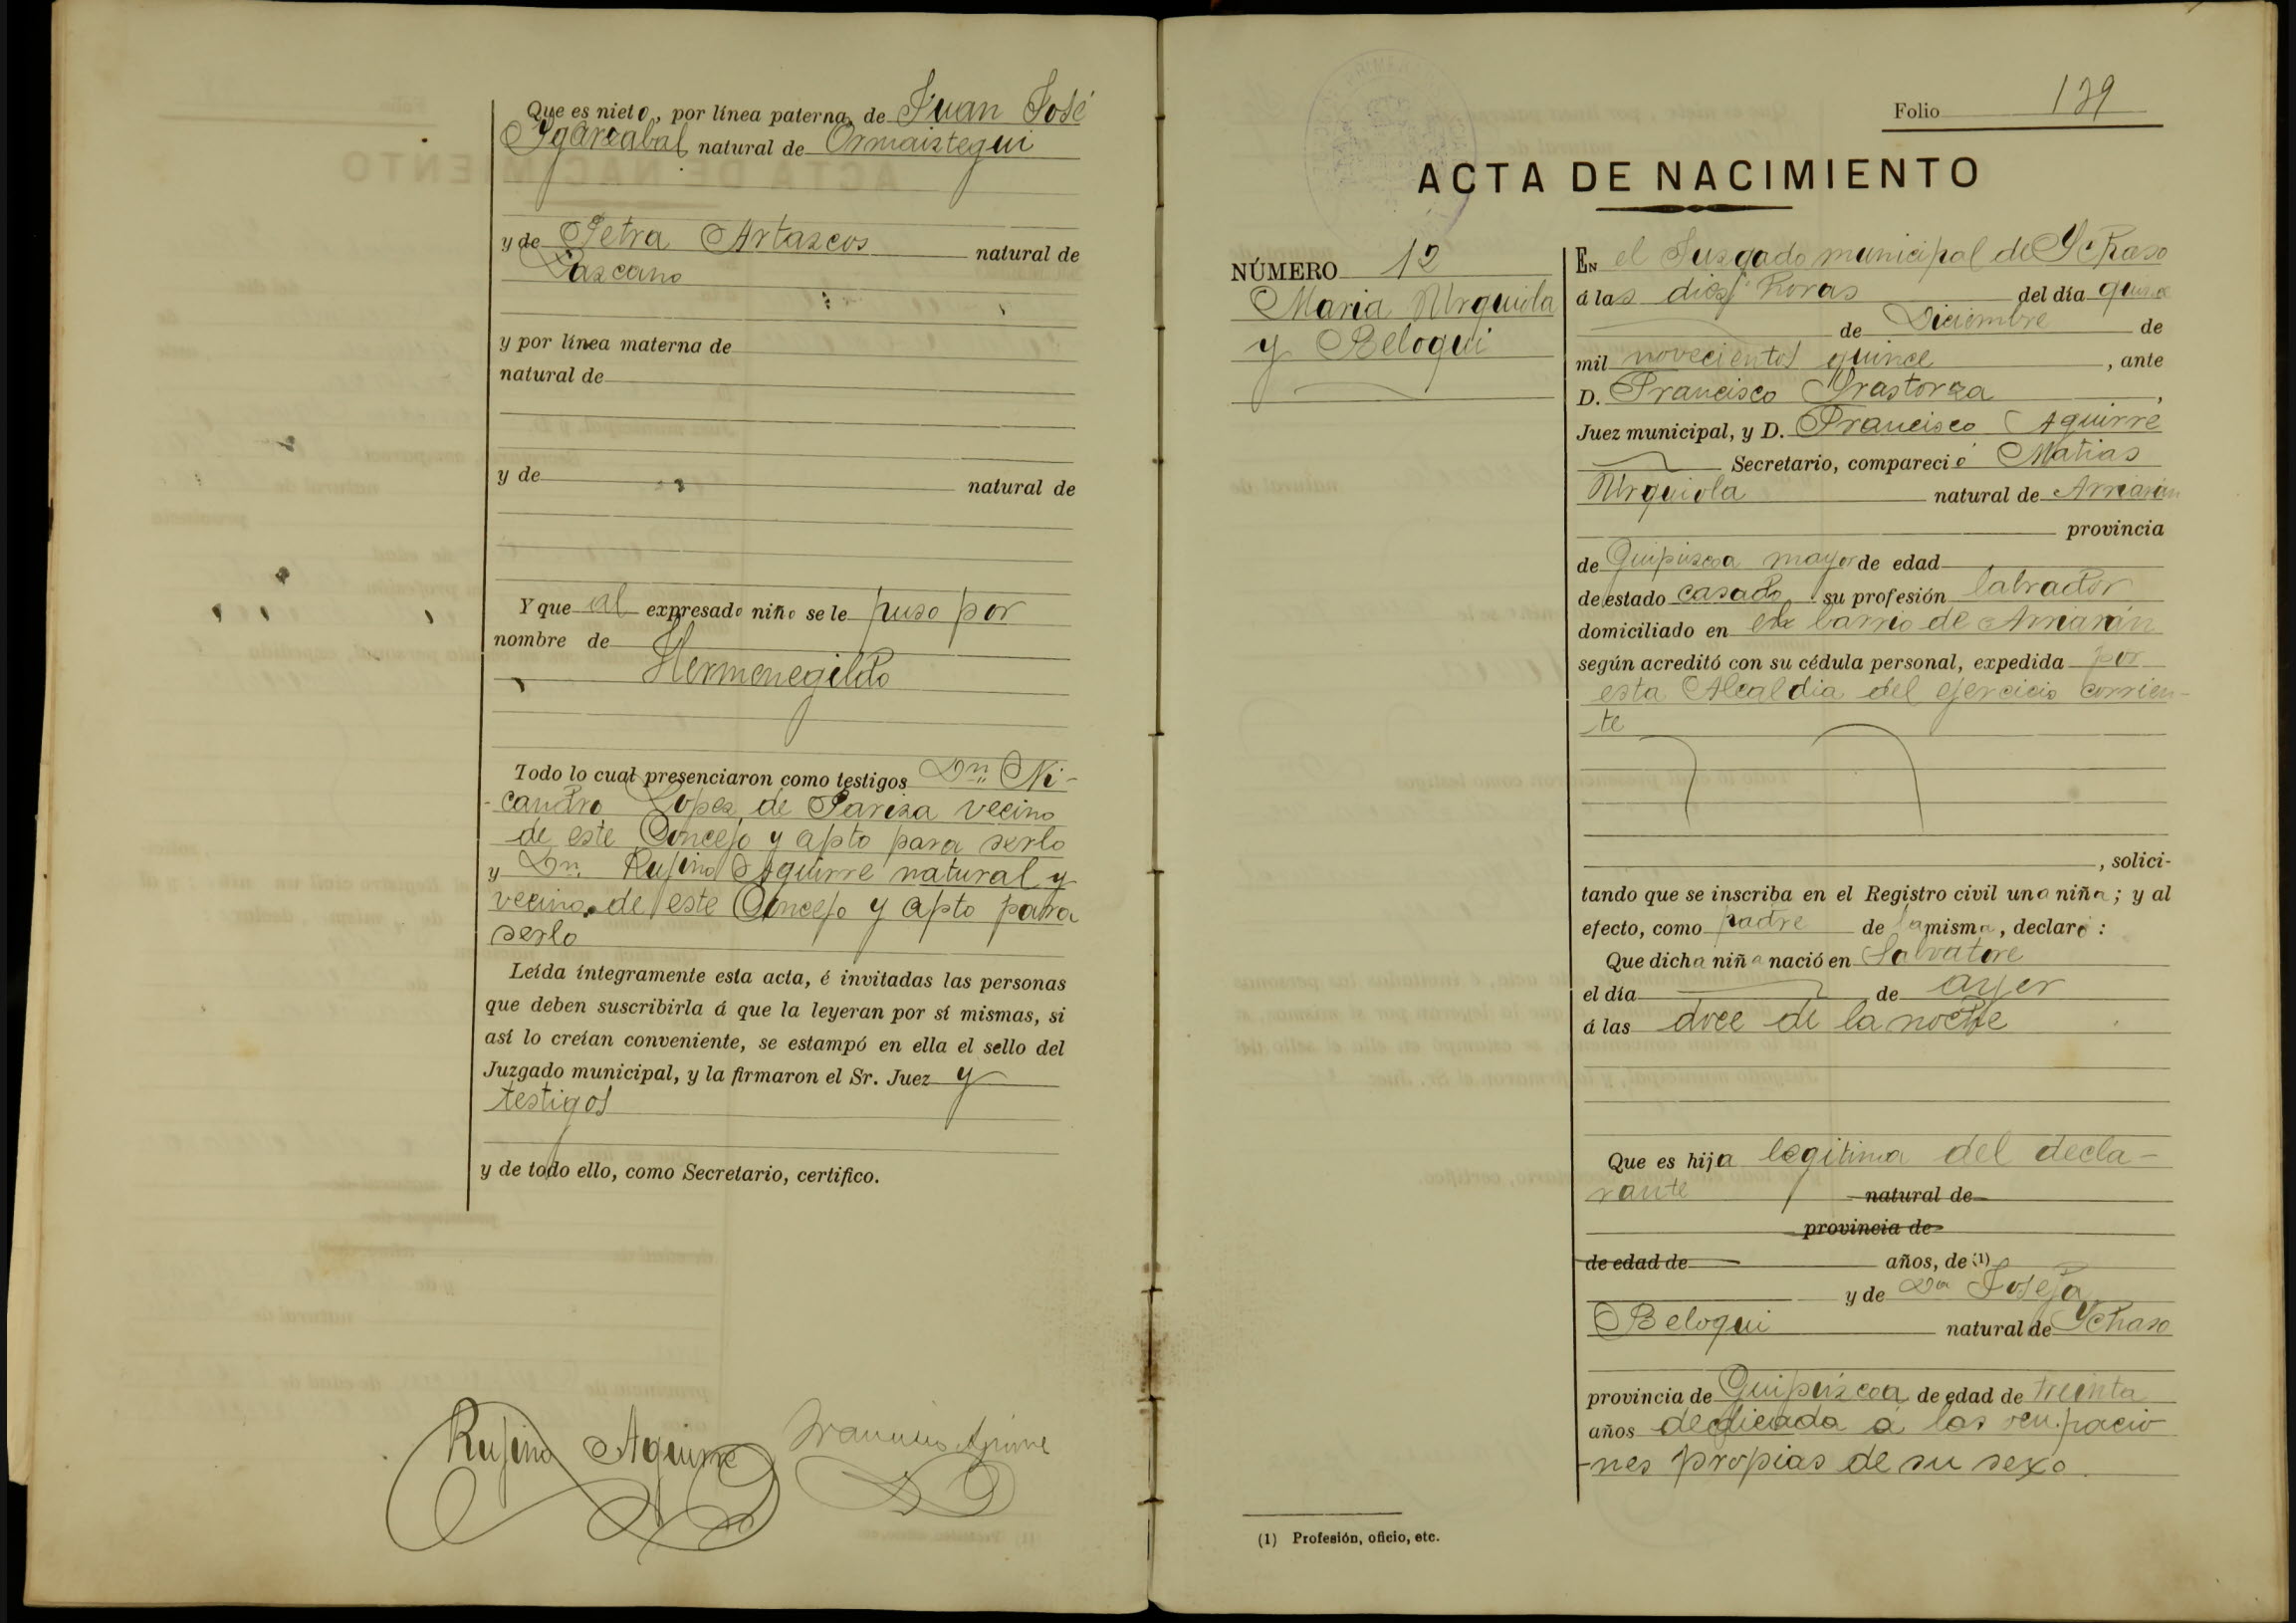 Que es nieto, por línea paterna, de Juan José
Ygarzabal natural de Ormaiztegui
y de Petra Artazcos natural de
Lazcano
y por línea materna de
natural de
y de natural de
Y que al expresado niño se le puso por
nombre de
Hermenegildo
Todo lo cual presenciaron como testigos Dn. Ni-
-candro Lopez de Pariza vecino
de este Concejo y apto para serlo
y Dn. Rufino Aguirre natural y
vecino de este Concejo y apto para
serlo
Leída íntegramente esta acta, é invitadas las personas
que deben suscribirla á que la leyeran por sí mismas, si
así lo creían conveniente, se estampó en ella el sello del
Juzgado municipal, y la firmaron el Sr. Juez y
testigos
y de todo ello, como Secretario, certifico.
Rufino Aguirre Francisco Aguirre
Folio 129
ACTA DE NACIMIENTO
NÚMERO 12
Maria Urquiola
y Beloqui
EN el Juzgado municipal de Ychaso
á las diez horas del día quince
de Diciembre de
mil novecientos quince, ante
D. Francisco Yrastorza,
Juez municipal, y D. Francisco Aguirre
Secretario, compareció Matias
Urquiola natural de Arriarán
provincia
de Guipúzcoa mayor de edad
de estado casado su profesión labrador
domiciliado en el barrio de Arriarán
según acreditó con su cédula personal, expedida por
esta Alcaldia del ejercicio corrien-
te
, solici-
tando que se inscriba en el Registro civil una niña; y al
efecto, como padre de la misma, declaró:
Que dicha niña nació en Salvatore
el día de ayer
á las doce de la noche
Que es hija legitima del decla-
rante natural de
provincia de
de edad de años, de (1)
y de Da Josefa
Beloqui natural de Ychaso
provincia de Guipúzcoa de edad de treinta
años dedicada á las ocupacio
-nes propias de su sexo.
(1) Profesión, oficio, etc.